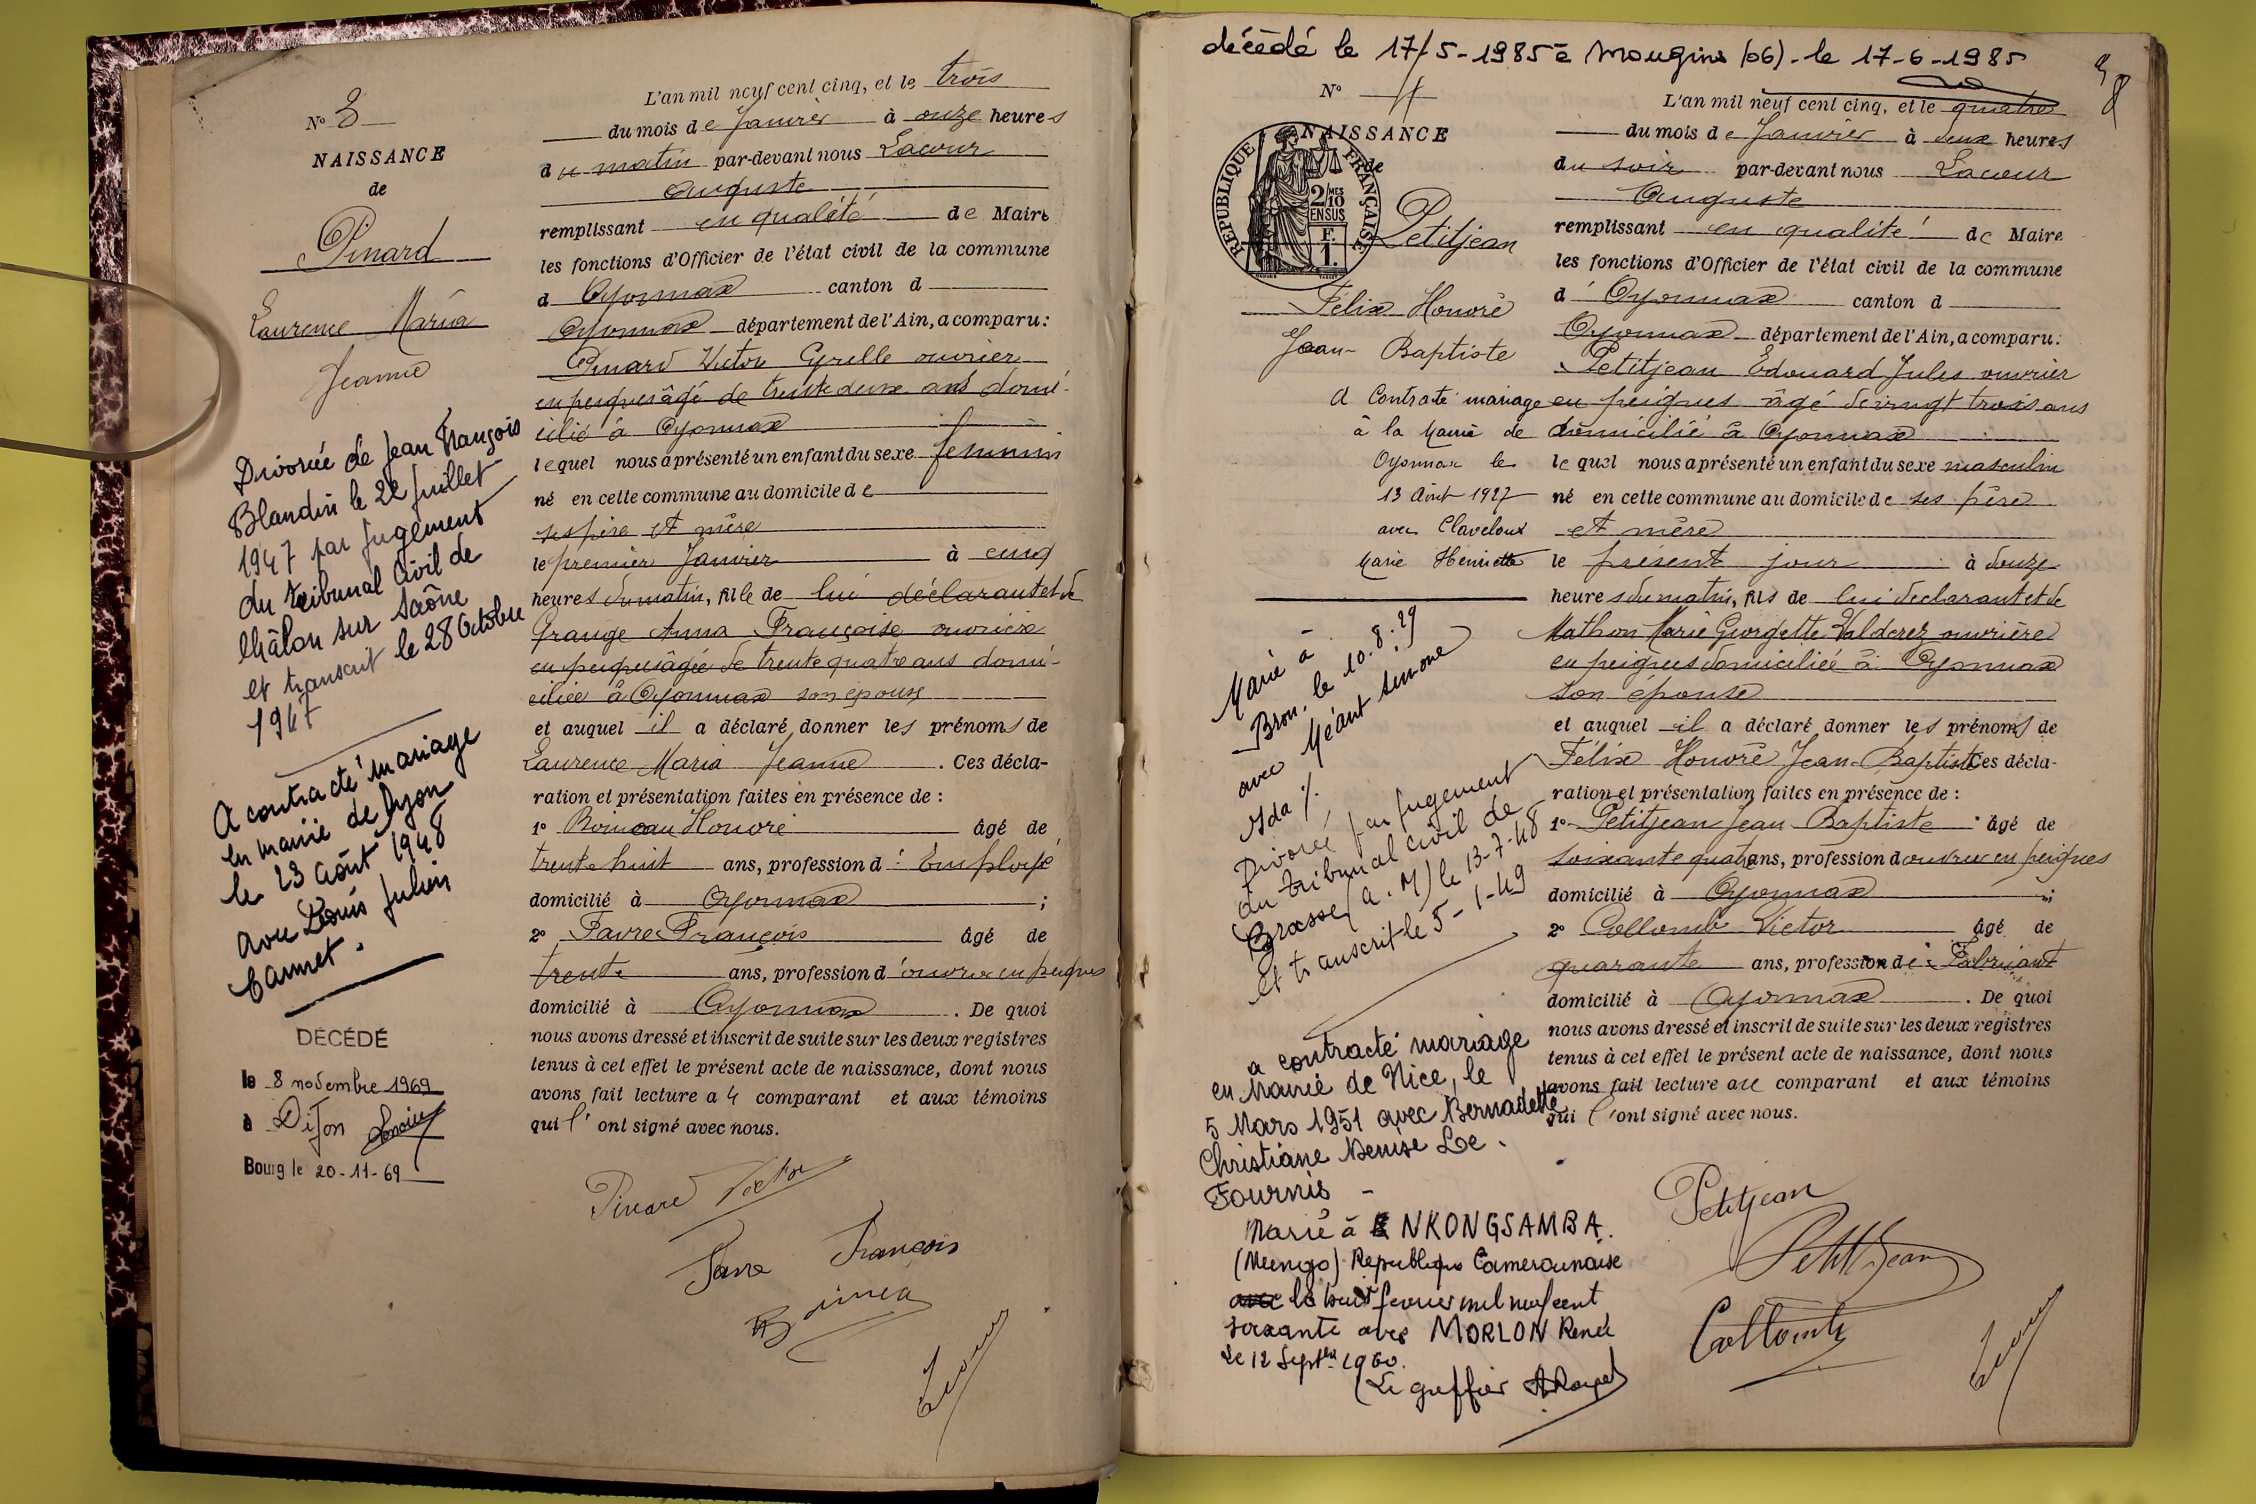 N° 3
NAISSANCE
de
Pinard
Laurence Maria
Jeanne
Divorcée de Jean François
Blandin le 22 Juillet
1947 par jugement
du tribunal Civil de
Châlon sur Saône
et transcrit le 28 Octobre
1947
A contracté mariage
en mairie de Lyon
le 23 août 1948
avec Louis Julien
Cannet.
DÉCÉDÉ
le 8 novembre 1969
à Dijon
Bourg le 20-11-69
L'an mil neuf cent cinq, et le trois
du mois de Janvier à onze heures
du matin par-devant nous Lacour
Auguste
remplissant en qualité de Maire
les fonctions d'Officier de l'état civil de la commune
d Oyonnax canton d
Oyonnax département de l'Ain, a comparu:
Pinard Victor Cyrille ouvrier
en peignes âgé de trente deux ans domi-
cilié à Oyonnax
lequel nous a présenté un enfant du sexe féminin
né en cette commune au domicile de
ses père et mère
le premier Janvier à cinq
heures du matin, fille de lui déclarant et de
Grange Anna Françoise ouvrière
en peignes âgée de trente quatre ans domi-
ciliée à Oyonnax son épouse
et auquel il a déclaré donner les prénoms de
Laurence Maria Jeanne . Ces décla-
ration et présentation faites en présence de :
1° Honoré âgé de
trente huit ans, profession d' Employé
domicilié à Oyonnax ;
2° Favre François âgé de
trente ans, profession d'ouvrier en peignes
domicilié à Oyonnax . De quoi
nous avons dressé et inscrit de suite sur les deux registres
tenus à cet effet le présent acte de naissance, dont nous
avons fait lecture au comparant et aux témoins
qui l'ont signé avec nous.
Pinard Victor
Favre François
décédé le 17/5-1985 à Mougins (06) - le 17-6-1985
N° 4
NAISSANCE
de
REPUBLIQUE FRANÇAISE
2/10
MES
EN SUS
F.
1.
Petitjean
Félix Honoré
Jean-Baptiste
A Contracté mariage
à la Mairie de
Oyonnax le
13 Août 1927
avec Claveloux
Marie Henriette
Marié à
Bron, le 10.8.29
avec Méant Simone
Ida %.
Divorcé par jugement
du tribunal civil de
Grasse (A.M) le 13-7-48
et transcrit le 5-1-49
a contracté mariage
en Mairie de Nice, le
5 Mars 1951 avec Bernadette
Christiane Denise Le
Fournis -
Marié à NKONGSAMBA.
(Mungo) République Camerounaise
le huit fevrier mil neuf cent
soixante avec MORLON Renée
Le 12 Septbre 1960.
(Le greffier
L'an mil neuf cent cinq, et le quatre
du mois de Janvier à deux heures
du soir par-devant nous Lacour
Auguste
remplissant en qualité de Maire
les fonctions d'Officier de l'état civil de la commune
d' Oyonnax canton d
Oyonnax département de l'Ain, a comparu:
Petitjean Edouard Jules ouvrier
en peignes âgé de vingt trois ans
domicilié à Oyonnax
lequel nous a présenté un enfant du sexe masculin
né en cette commune au domicile de ses père
et mère
le présent jour à douze
heures du matin, fils de lui déclarant et de
Mathon Marie Georgette Valderez ouvrière
en peignes domiciliée à Oyonnax
son épouse
et auquel il a déclaré donner les prénoms de
Félix Honoré Jean-Baptiste Ces décla-
ration et présentation faites en présence de :
1° Petitjean Jean-Baptiste âgé de
soixante quatre ans, profession d ouvrier en peignes
domicilié à Oyonnax ;
2° Collomb Victor âgé de
quarante ans, profession de Fabricant
domicilié à Oyonnax . De quoi
nous avons dressé et inscrit de suite sur les deux registres
tenus à cet effet le présent acte de naissance, dont nous
avons fait lecture au comparant et aux témoins
qui l'ont signé avec nous.
Petitjean
Petitjean
Collomb